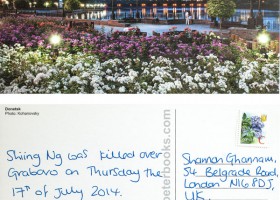 Donetsk
Photo: Kohanovsky
Shiing Ng was killed over
Grabovo on Thursday the
17th of July 2014.
peterbooks.com
Shannon Ghannam,
54 Belgrade Road,
London N16 8DJ,
UK.